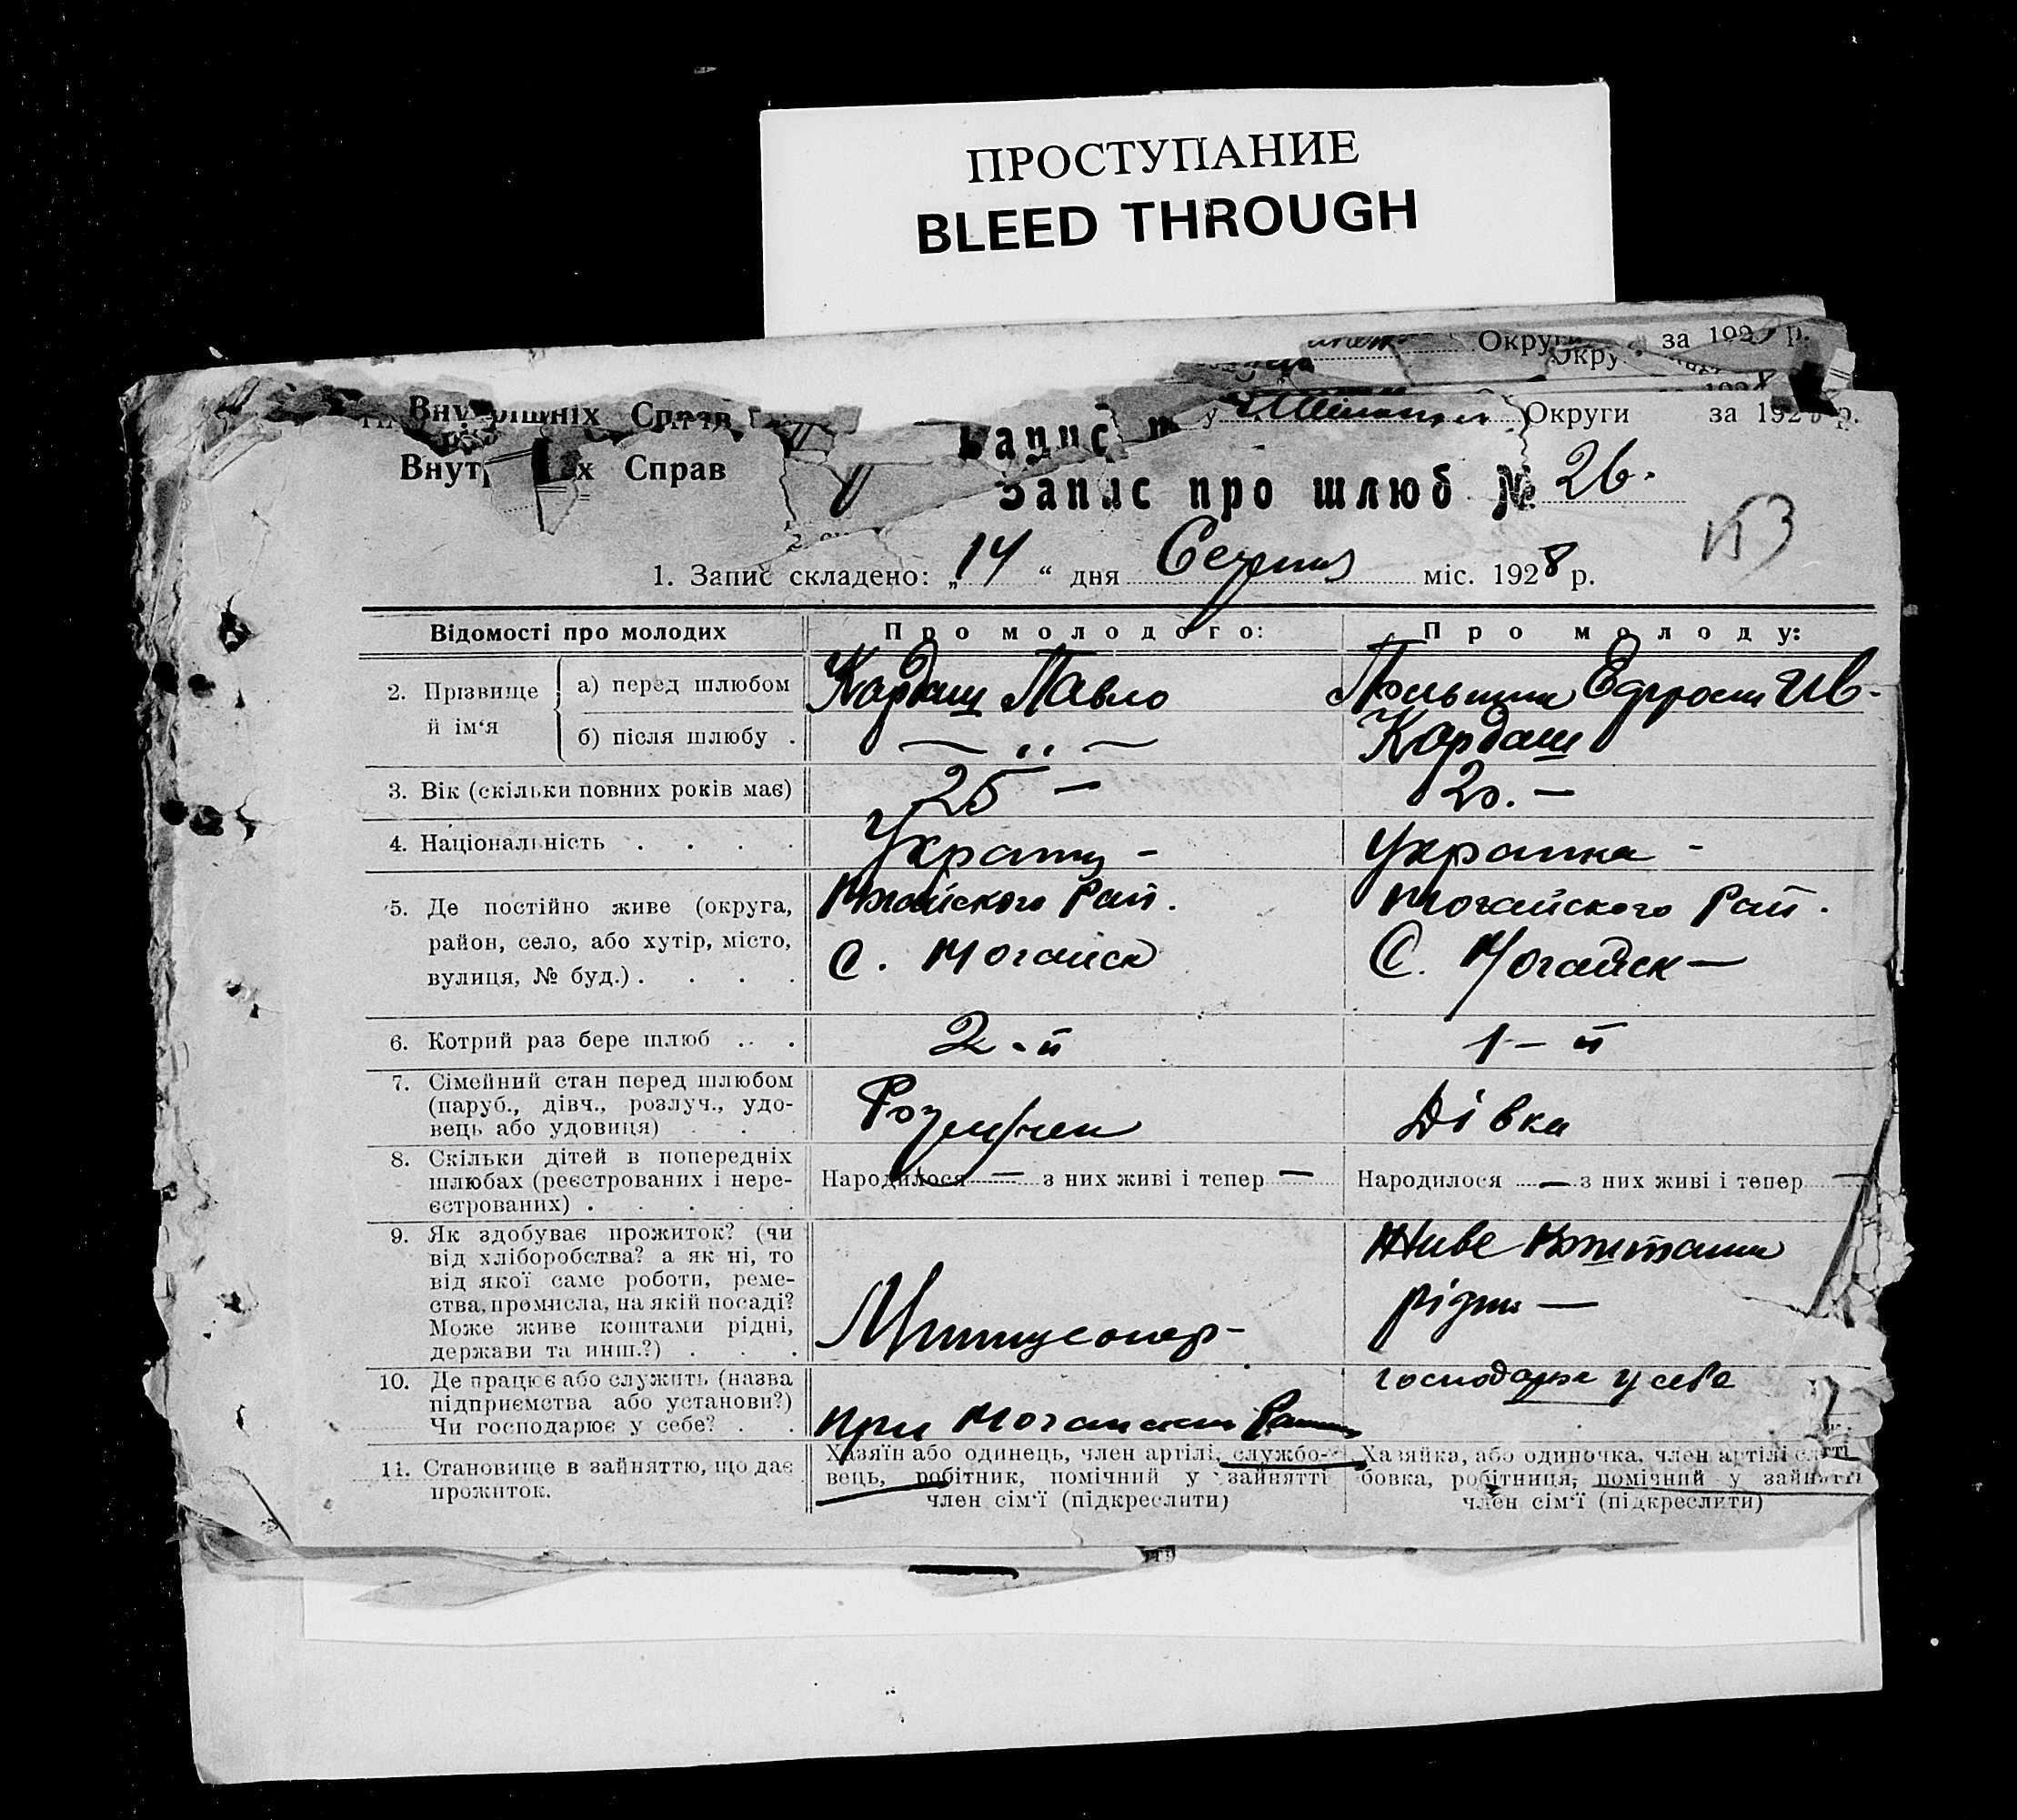 ПРОСТУПАНИЕ
BLEED THROUGH
Округи за 192 р.
Окру
Внутрішніх Справ
у Округи за 192 р.
Запис
Внут х Справ
Запис про шлюб № 26.
153
1. Запис складено: „14“ дня Серпня міс. 1928 р.
Відомості про молодих Про молодого: Про молоду:
2. Прізвище й ім‘я а) перед шлюбом Кардаш Павло Ив-
б) після шлюбу . — „ — Кардаш
3. Вік (скільки повних років має) 25 — 20. —
4. Національність . . . . Украинц - Украинка -
5. Де постійно живе (округа, Ногайского Рай. Ногайского Рай.
район, село, або хутір, місто, С. Ногайск С. Ногайск —
вулиця, № буд.) . . . .
6. Котрий раз бере шлюб . . . 2-й 1-й
7. Сімейний стан перед шлюбом
(паруб., дівч., розлуч., удо- Дівка
вець або удовиця) . . .
8. Скільки дітей в попередніх
шлюбах (реєстрованих і нере- Народилося — з них живі і тепер — Народилося — з них живі і тепер —
єстрованих) . . . . .
9. Як здобуває прожиток? (чи Живе коштами
від хліборобства? а як ні, то
від якої саме роботи, реме- рідни —
ства, промисла, на якій посаді?
Може живе коштами рідні,
держави та инш.?) . . .
10. Де працює або служить (назва господарює у себе
підприємства або установи?)
Чи господарює у себе? . . при
11. Становище в зайняттю, що дає Хазяїн або одинець, член артілі, службо- Хазяйка, або одиночка, член артілі
прожиток. вець, робітник, помічний у зайнятті бовка, робітниця, помічний у зайнятті
член сім‘ї (підкреслити) член сім‘ї (підкреслити)